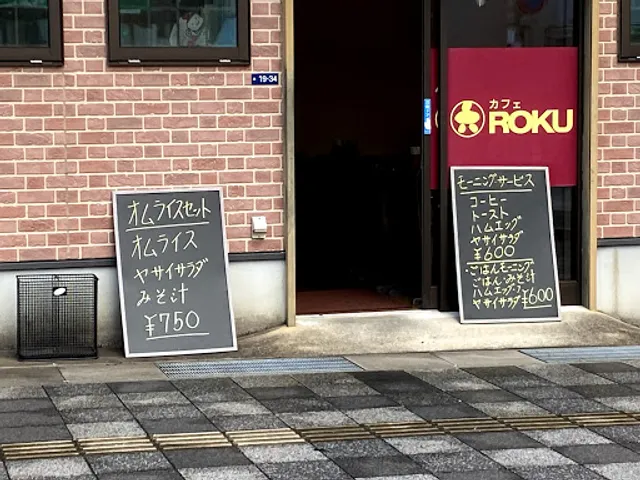 19-34
カフェ
ROKU
オムライスセット
オムライス
ヤサイサラダ
みそ汁
¥750
モーニングサービス
コーヒー
トースト
ハムエッグ
ヤサイサラダ
¥600
ごはんモーニング
ごはん・みそ汁
ハムエッグ・
ヤサイサラダ ¥600